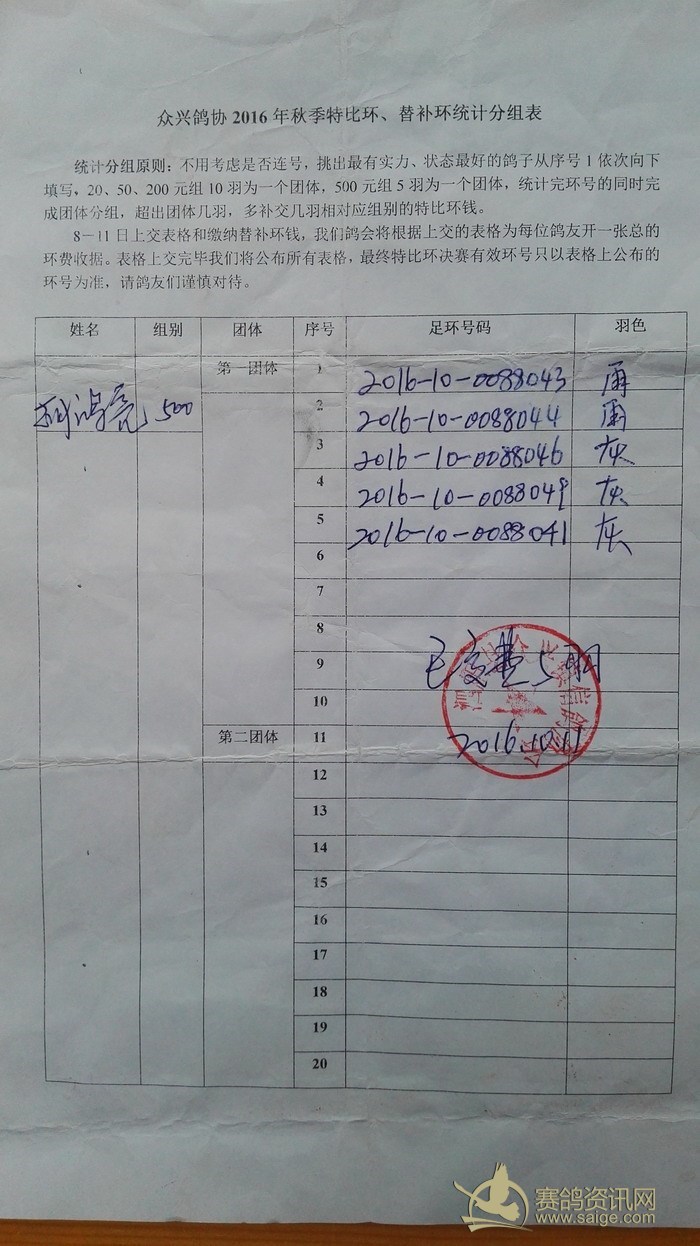 众兴鸽协 2016 年秋季特比环、替补环统计分组表
统计分组原则：不用考虑是否连号，挑出最有实力、状态最好的鸽子从序号 1 依次向下
填写，20、50、200 元组 10 羽为一个团体，500 元组 5 羽为一个团体，统计完环号的同时完
成团体分组，超出团体几羽，多补交几羽相对应组别的特比环钱。
8－11 日上交表格和缴纳替补环钱，我们鸽会将根据上交的表格为每位鸽友开一张总的
环费收据。表格上交完毕我们将公布所有表格，最终特比环决赛有效环号只以表格上公布的
环号为准，请鸽友们谨慎对待。
姓名 组别 团体 序号 足环号码 羽色
鸿亮 500 第一团体 1 2016-10-0088043 雨
2 2016-10-0088044 雨
3 2016-10-0088046 灰
4 2016-10-0088049 灰
5 2016-10-0088041 灰
6
7
8
9 已交费5羽
10
第二团体 11 2016.10.11
12
13
14
15
16
17
18
19
20
赛鸽资讯网
www.saige.com